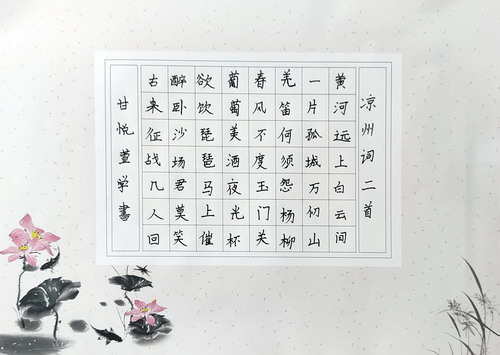 凉州词二首
黄河远上白云间
一片孤城万仞山
羌笛何须怨杨柳
春风不度玉门关
葡萄美酒夜光杯
欲饮琵琶马上催
醉卧沙场君莫笑
古来征战几人回
甘悦萱学書